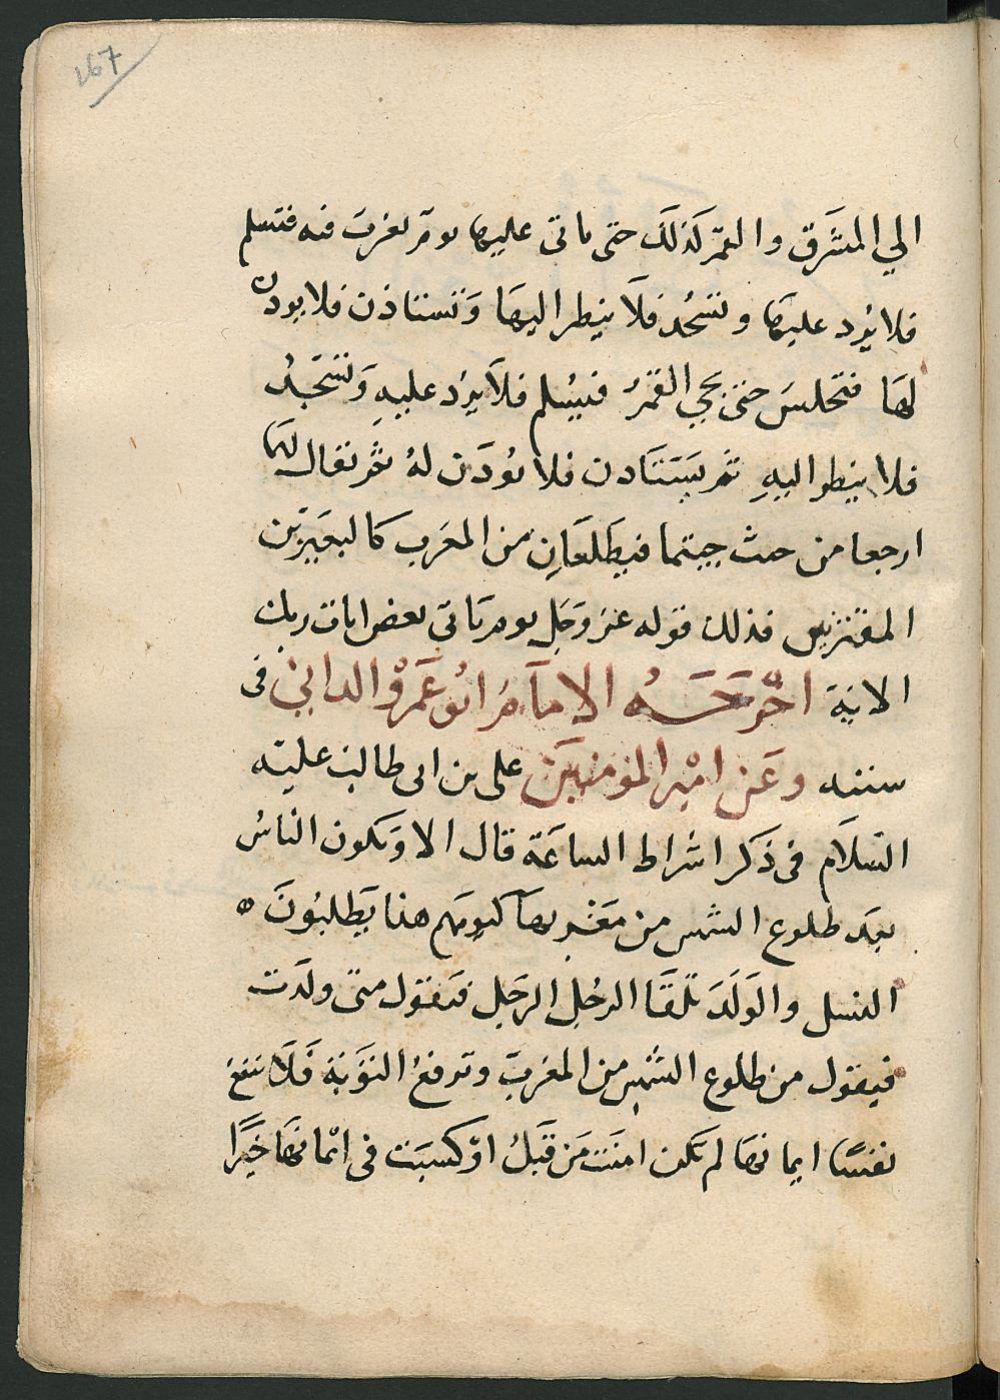 167
الي المشَرق والقمر كَذلَك حتى ياتى عليها يومٌ تغربُ فيه فتسلم
فلا يُرد عليهَا وتسْجُد فلاَ ينظر اليهَا وَتستاذن فلا يوذن
لهَا فتجلسَ حتى يجي القمرُ فيُسلم فلاَ يرُد عليهِ وَيسَجدُ
فلا ينظر اليهِ ثم يَستَاذن فلا يُوذَن لهُ ثم يقال لهَما
ارجعا من حيث جيتما فيطَلعَانِ من المغرب كالبعَيرَين
المقترنين فذلك قوله عز وَجَل يوم يَاتي بعض ايات ربك
الاية اخرجَهُ الامامُ ابُو عَمرْو الداني فى
سننه وعَن امْير المؤمنيَن على بن ابى طالب عليَه
السَلاَم فى ذكر اشراط الساعَة قال الا وَتكون الناسُ
بعَد طلوع الشمس من مَغَربهَا كيومهم هذا يَطلبُونَ
النسل والوَلَدَ يَلقَا الرجُل الرجَل فيَقول متى ولَدت
فيقول من طلوع الشمس من المغربَ وترفعُ التوَبَة فَلاَ تنفع
نفسًا ايمانهَا لم تَكن امنَت مَن قَبَلُ اوْ كسبَت فى ايْمانهَا خَيرًا